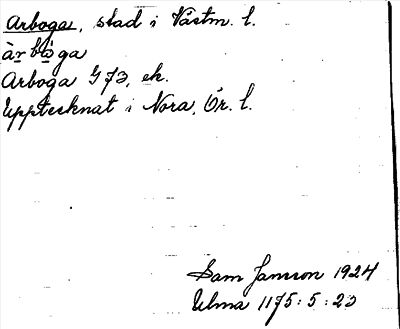 Arboga, stad i Västm. l.
Arboga G 73, ek.
Upptecknat i Nora, Ör. l.
Sam Jansson 1924
Ulma 1175:5:23